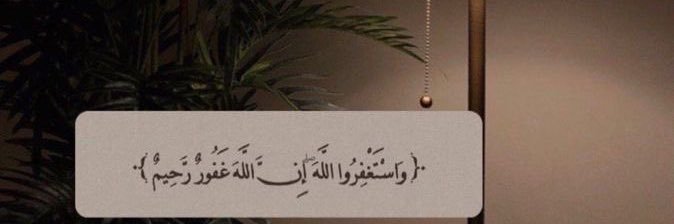 ﴿وَاسْتَغْفِرُوا اللَّهَ ۖ إِنَّ اللَّهَ غَفُورٌ رَّحِيمٌ﴾